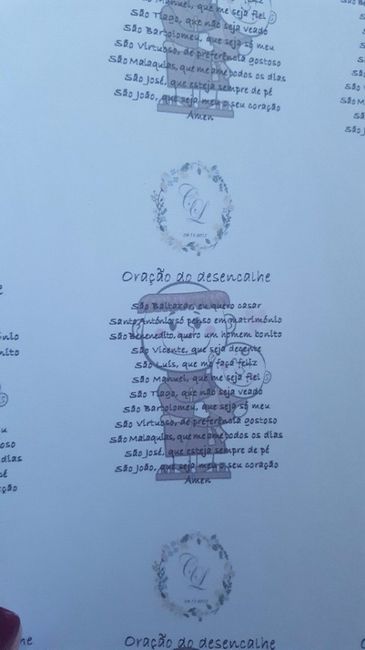 São Manuel, que me seja fiel
São Tiago, que não seja veado
São Bartolomeu, que seja só meu
São Virtuoso, de preferência gostoso
São Malaquias, que me ame todos os dias
São José, que esteja sempre de pé
São João, que seja meu o seu coração
Amen
CL
Oração do desencalhe
São Baltazar, eu quero casar
Santo António só penso em matrimónio
São Benenedito, quero um homem bonito
São Vicente, que seja decente
São Luis, que me faça feliz
São Manuel, que me seja fiel
São Tiago, que não seja veado
São Bartolomeu, que seja só meu
São Virtuoso, de preferência gostoso
São Malaquias, que me ame todos os dias
São José, que esteja sempre de pé
São João, que seja meu o seu coração
Amen
CL
Oração do desencalhe